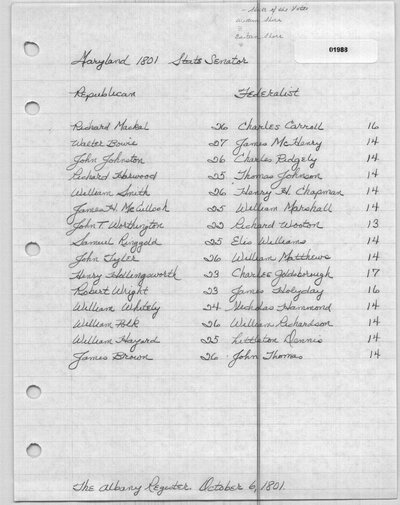 - State of the Votes
Western Shore
Eastern Shore
01988
Maryland 1801 State Senator
Republican Federalist
Richard Mackal 26 Charles Carroll 16
Walter Bowie 27 James McHenry 14
John Johnston 26 Charles Ridgely 14
Richard Harwood 25 Thomas Johnson 14
William Smith 26 Henry H. Chapman 14
James H. McCulloch 25 William Marshall 14
John T. Worthington 22 Richard Wooton 13
Samuel Ringgold 25 Elie Williams 14
John Tyler 26 William Matthews 14
Henry Hollingsworth 23 Charles Goldsborough 17
Robert Wright 23 James Holyday 16
William Whitely 24 Nicholas Hammond 14
William Polk 26 William Richardson 14
William Hayard 25 Littleton Dennis 14
James Brown 26 John Thomas 14
The Albany Register. October 6, 1801.